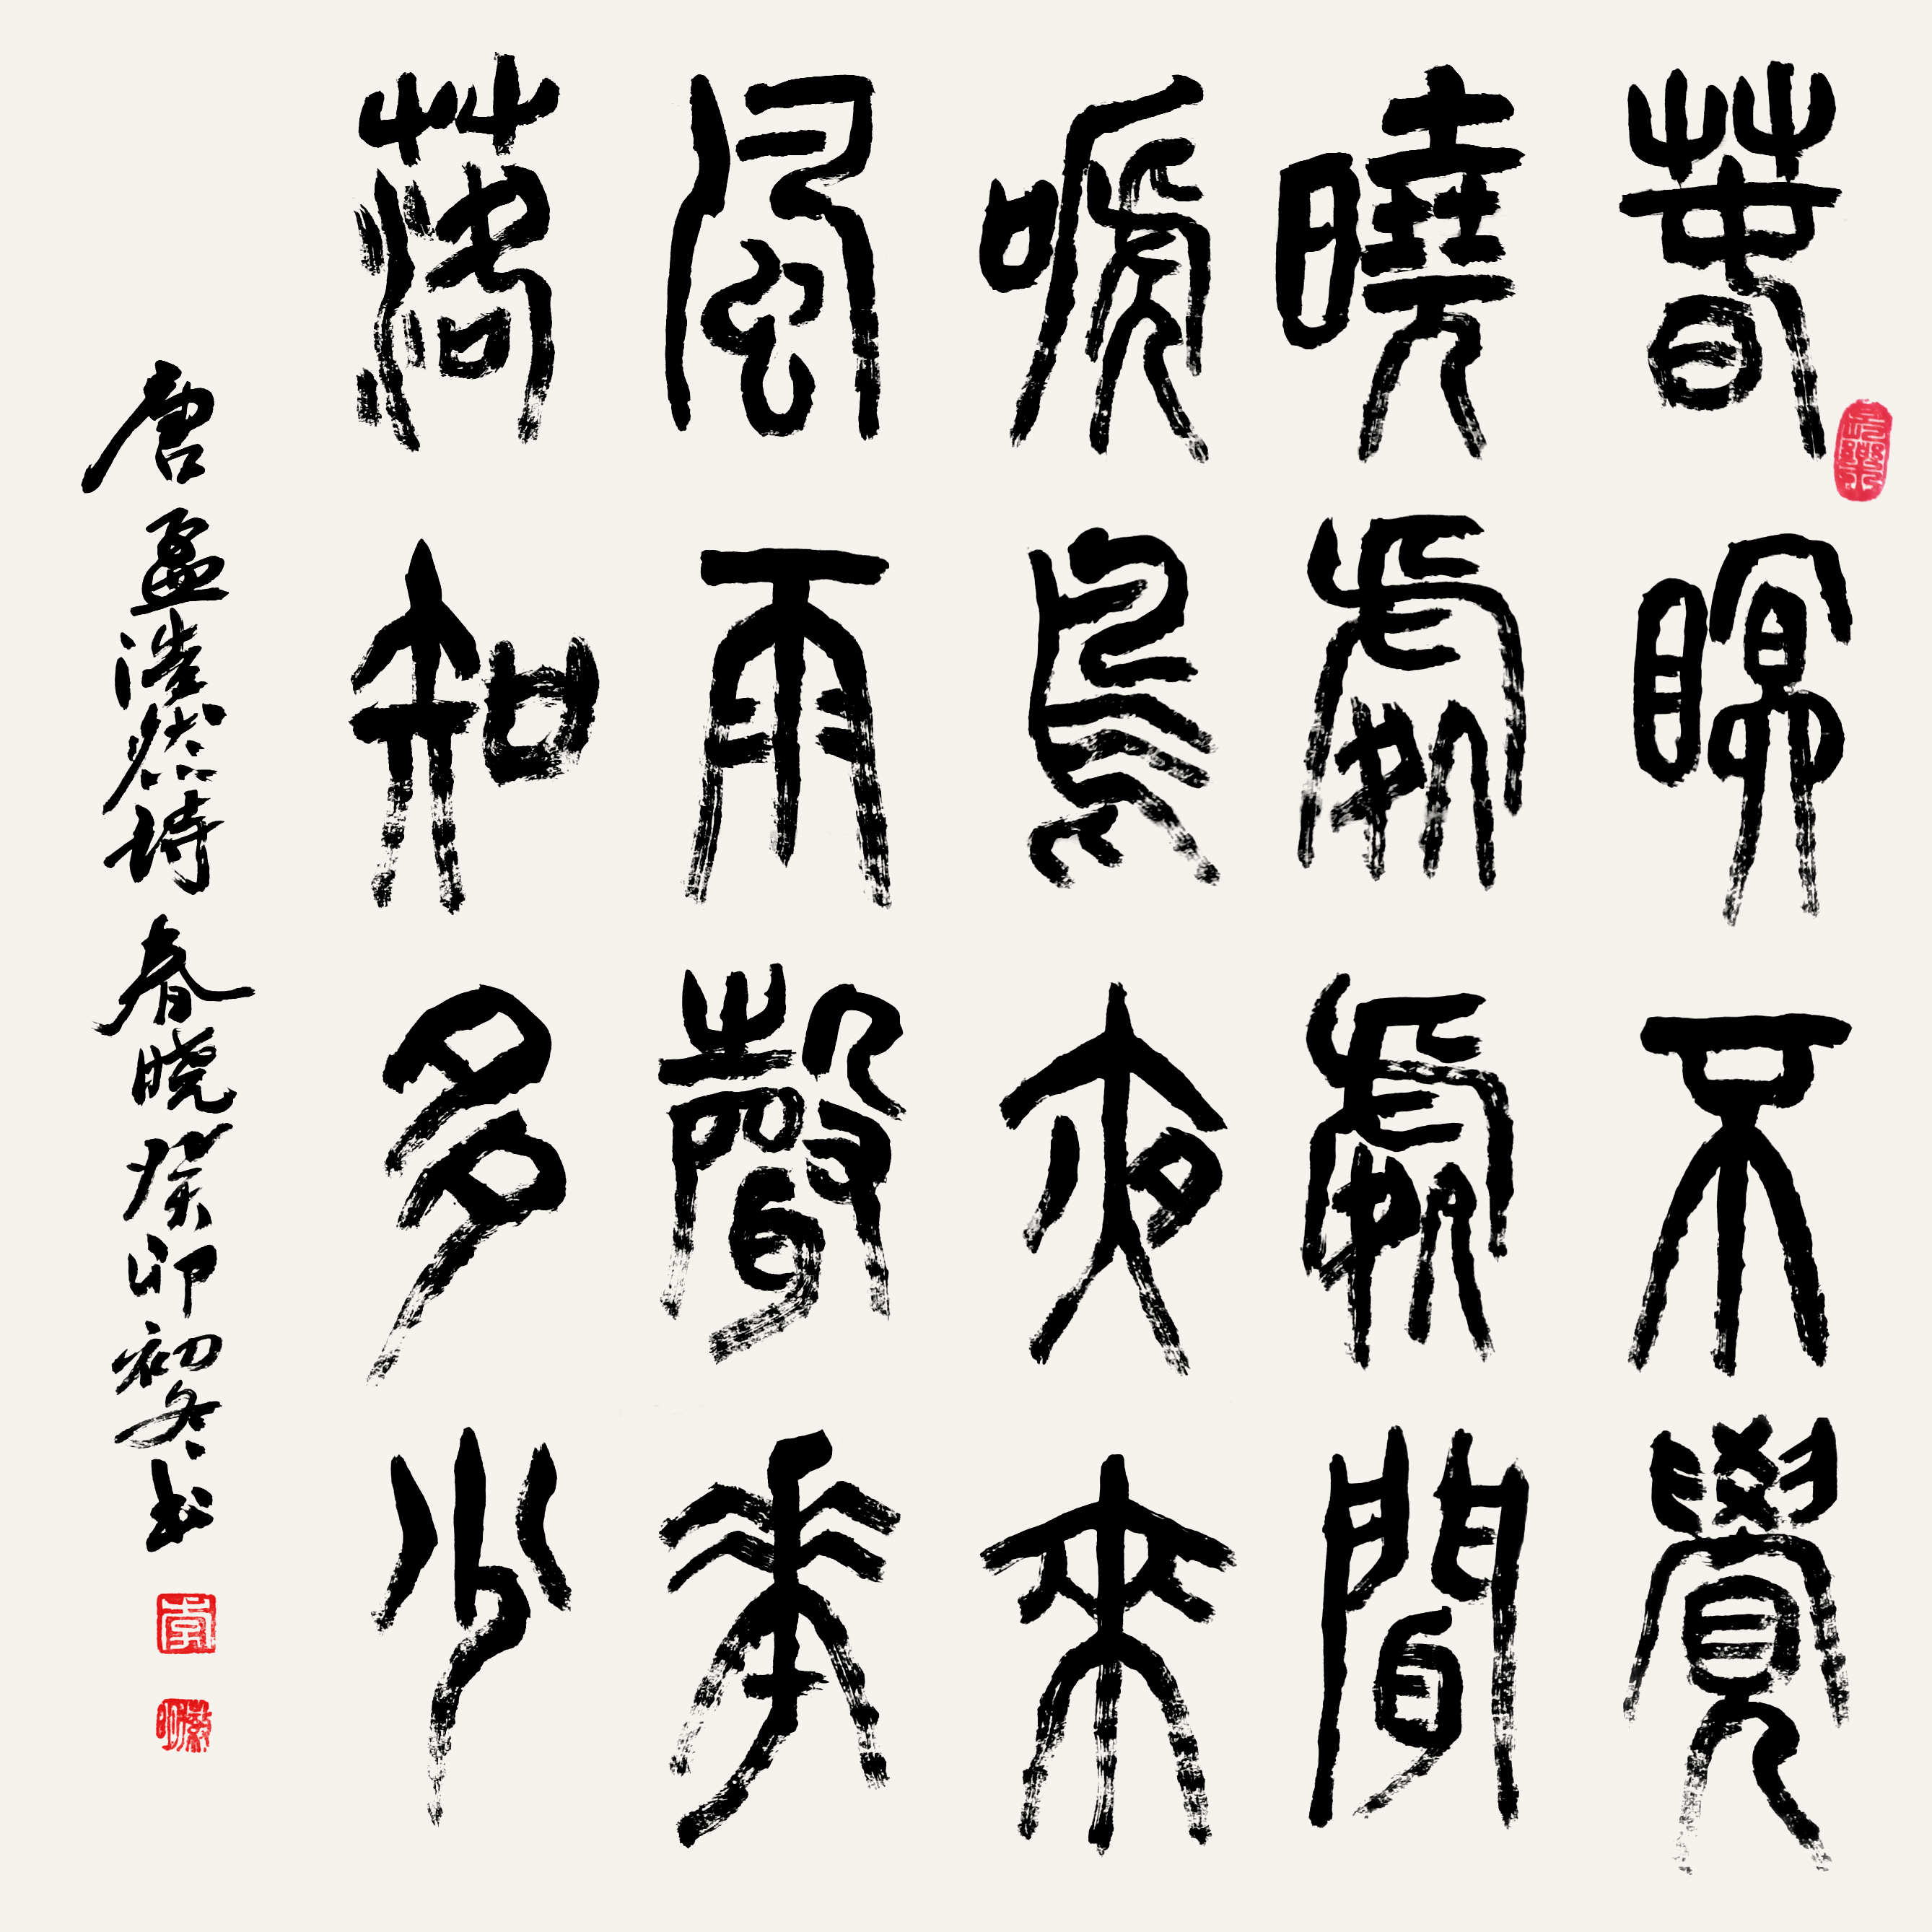 春眠不覺
曉處處聞
嗁鳥夜來
風雨聲華
落知多少
唐孟浩然詩春曉癸卯初冬書
李